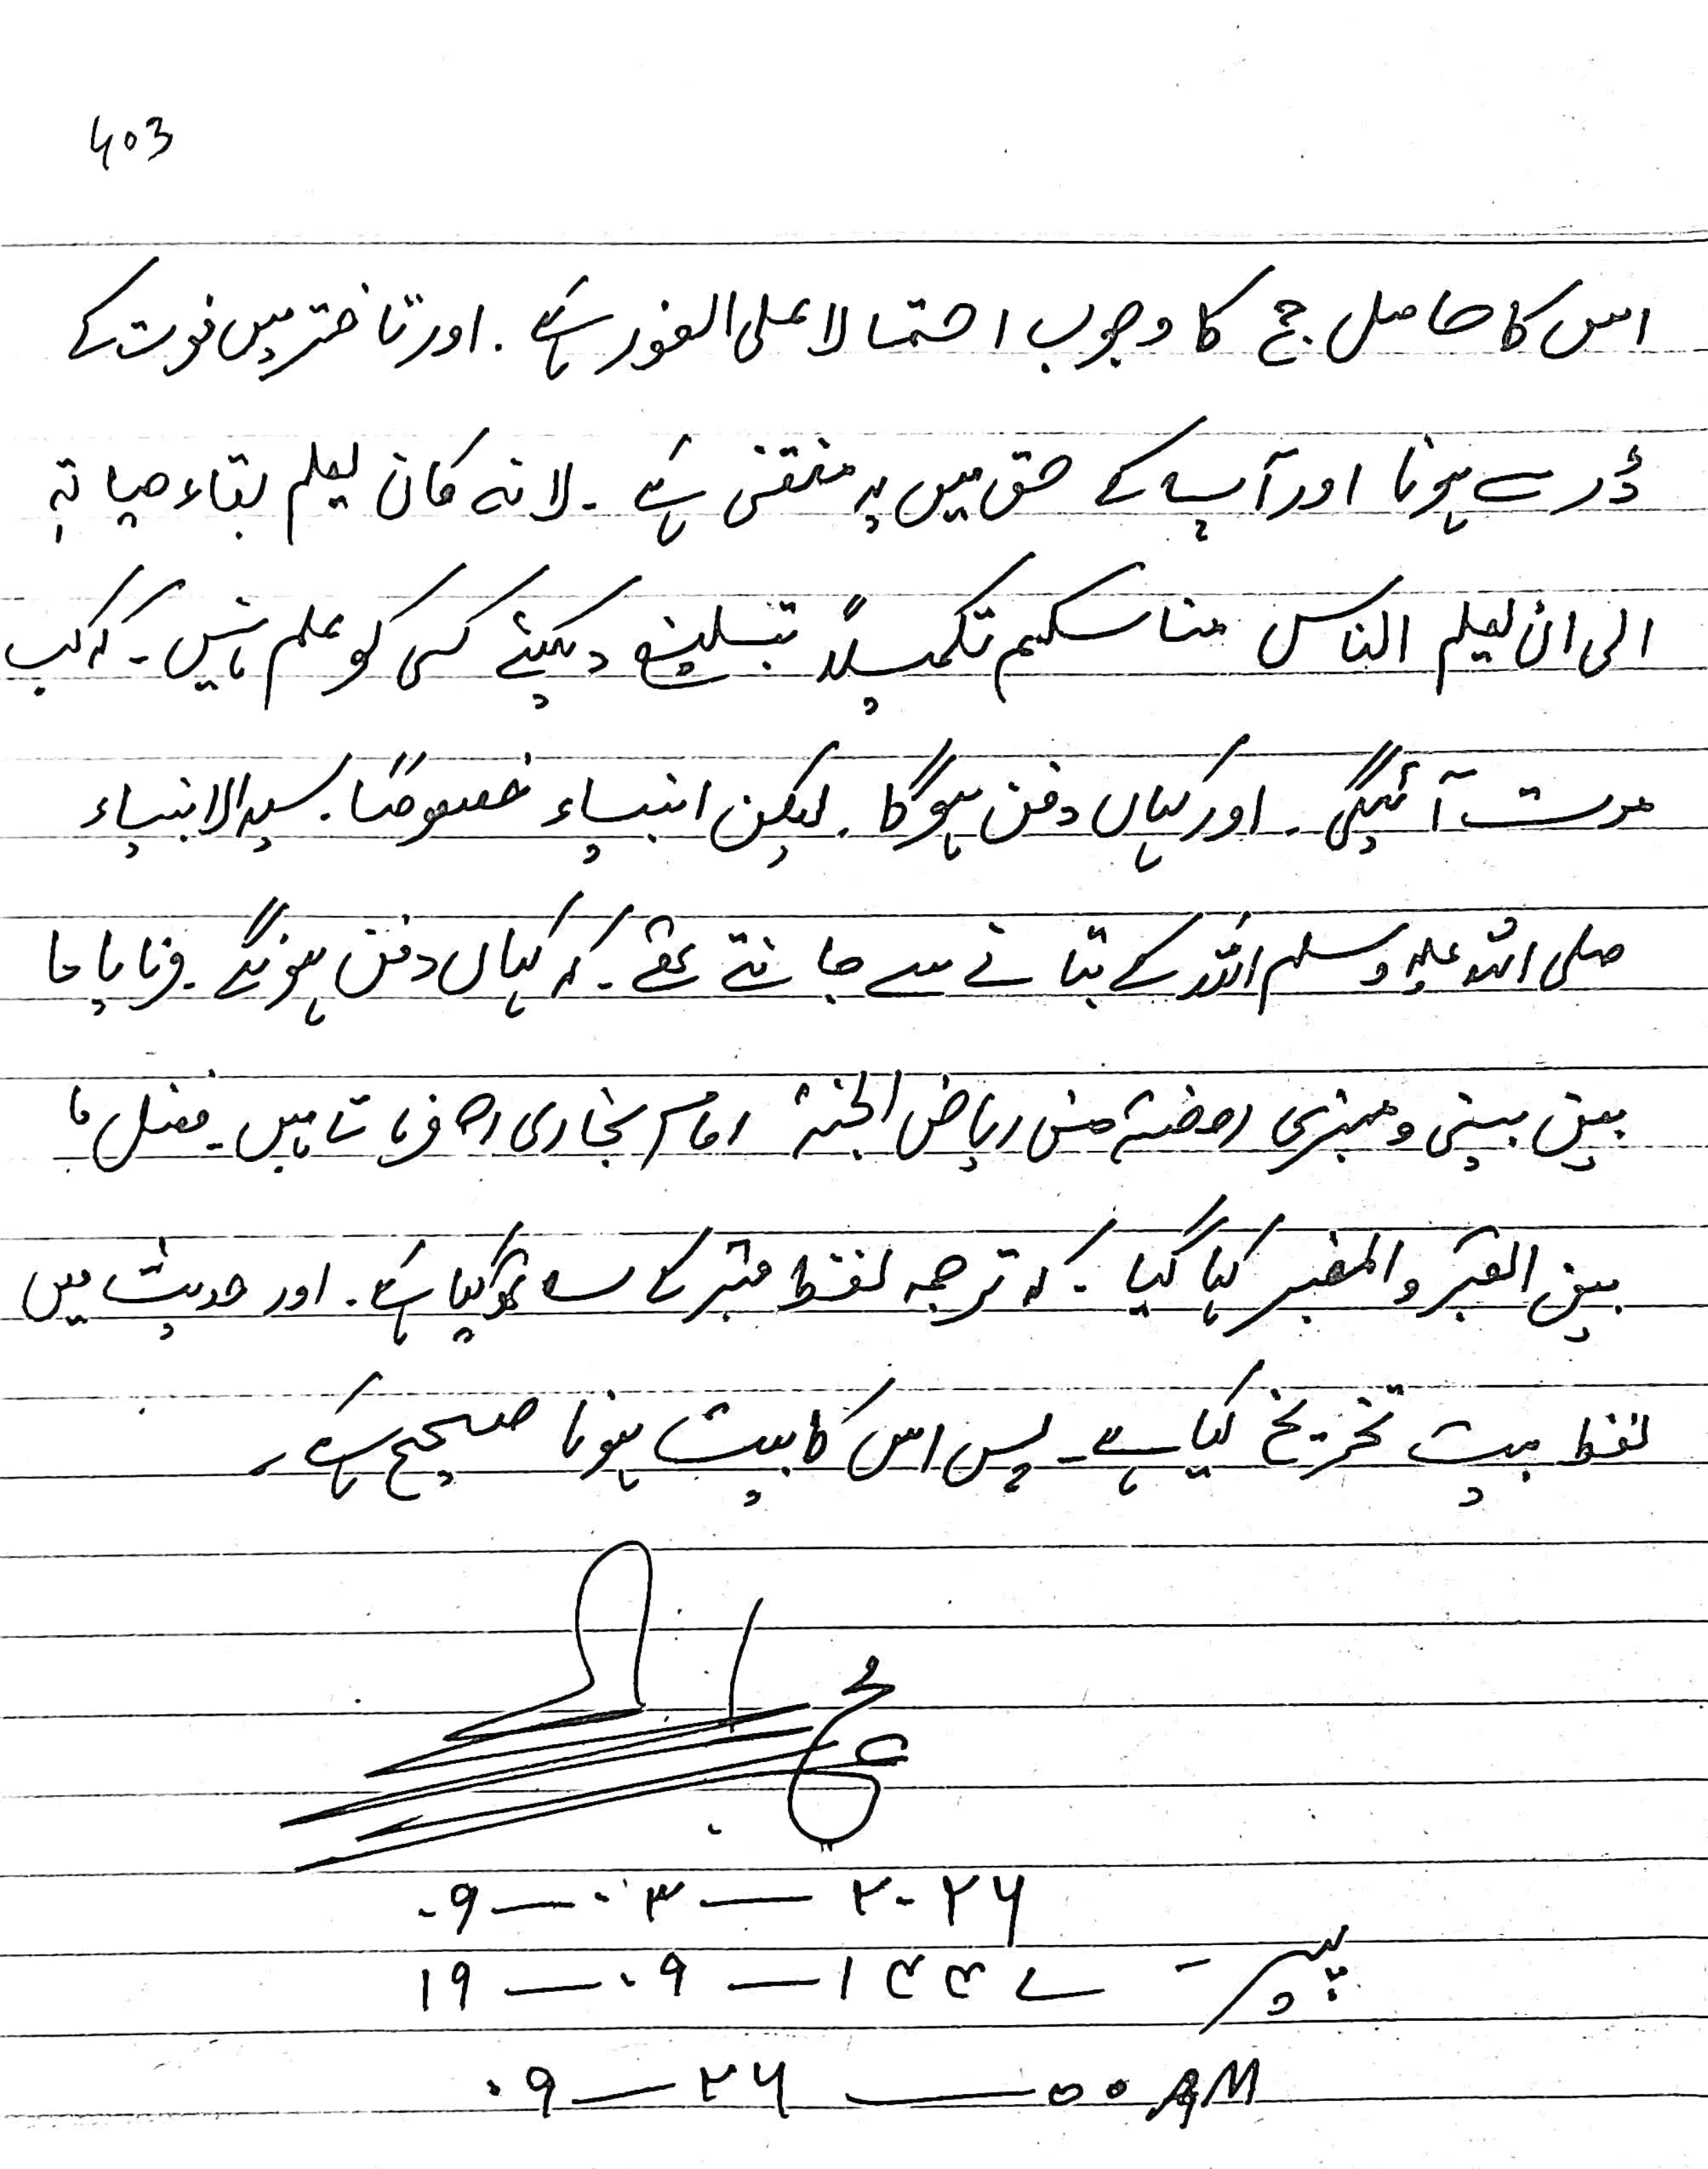 403
اس کا حاصل حج کا وجوب احتمالا علی الفور ہے۔ اور تاخیر میں فوت کے
ڈر سے ہونا اور آپ کے حق میں یہ منتفی ہے۔ لانه کان یعلم بقاء حیاته
الی ان یعلم الناس مناسکہم تکمیلاً تبلیغ دیکھئے کسی کو علم نہیں۔ کہ کب
موت آئیگی۔ اور کہاں دفن ہوگا۔ لیکن انبیاء خصوصًا۔ سید الانبیاء
صلی اللہ علیہ وسلم اللہ کے بتانے سے جانتے تھے۔ کہ کہاں دفن ہونگے۔ فرمایا ما
بین بیتی و منبری روضة من ریاض الجنة امام بخاری رح فرماتا ہیں۔ فضل ما
بین القبر والمنبر کہا گیا۔ کہ ترجمہ لفظ قبر کے ساتھ کیا ہے۔ اور حدیث میں
لفظ بیت تخریج کیا ہے۔ پس اس کا بیت ہونا صحیح ہے۔
۰۹ — ۰۳ — ۲۰۲۶
پیر - ۱۹ — ۰۹ — ۱۴۴۷
۰۹ — ۲۶ — ۵۰ AM